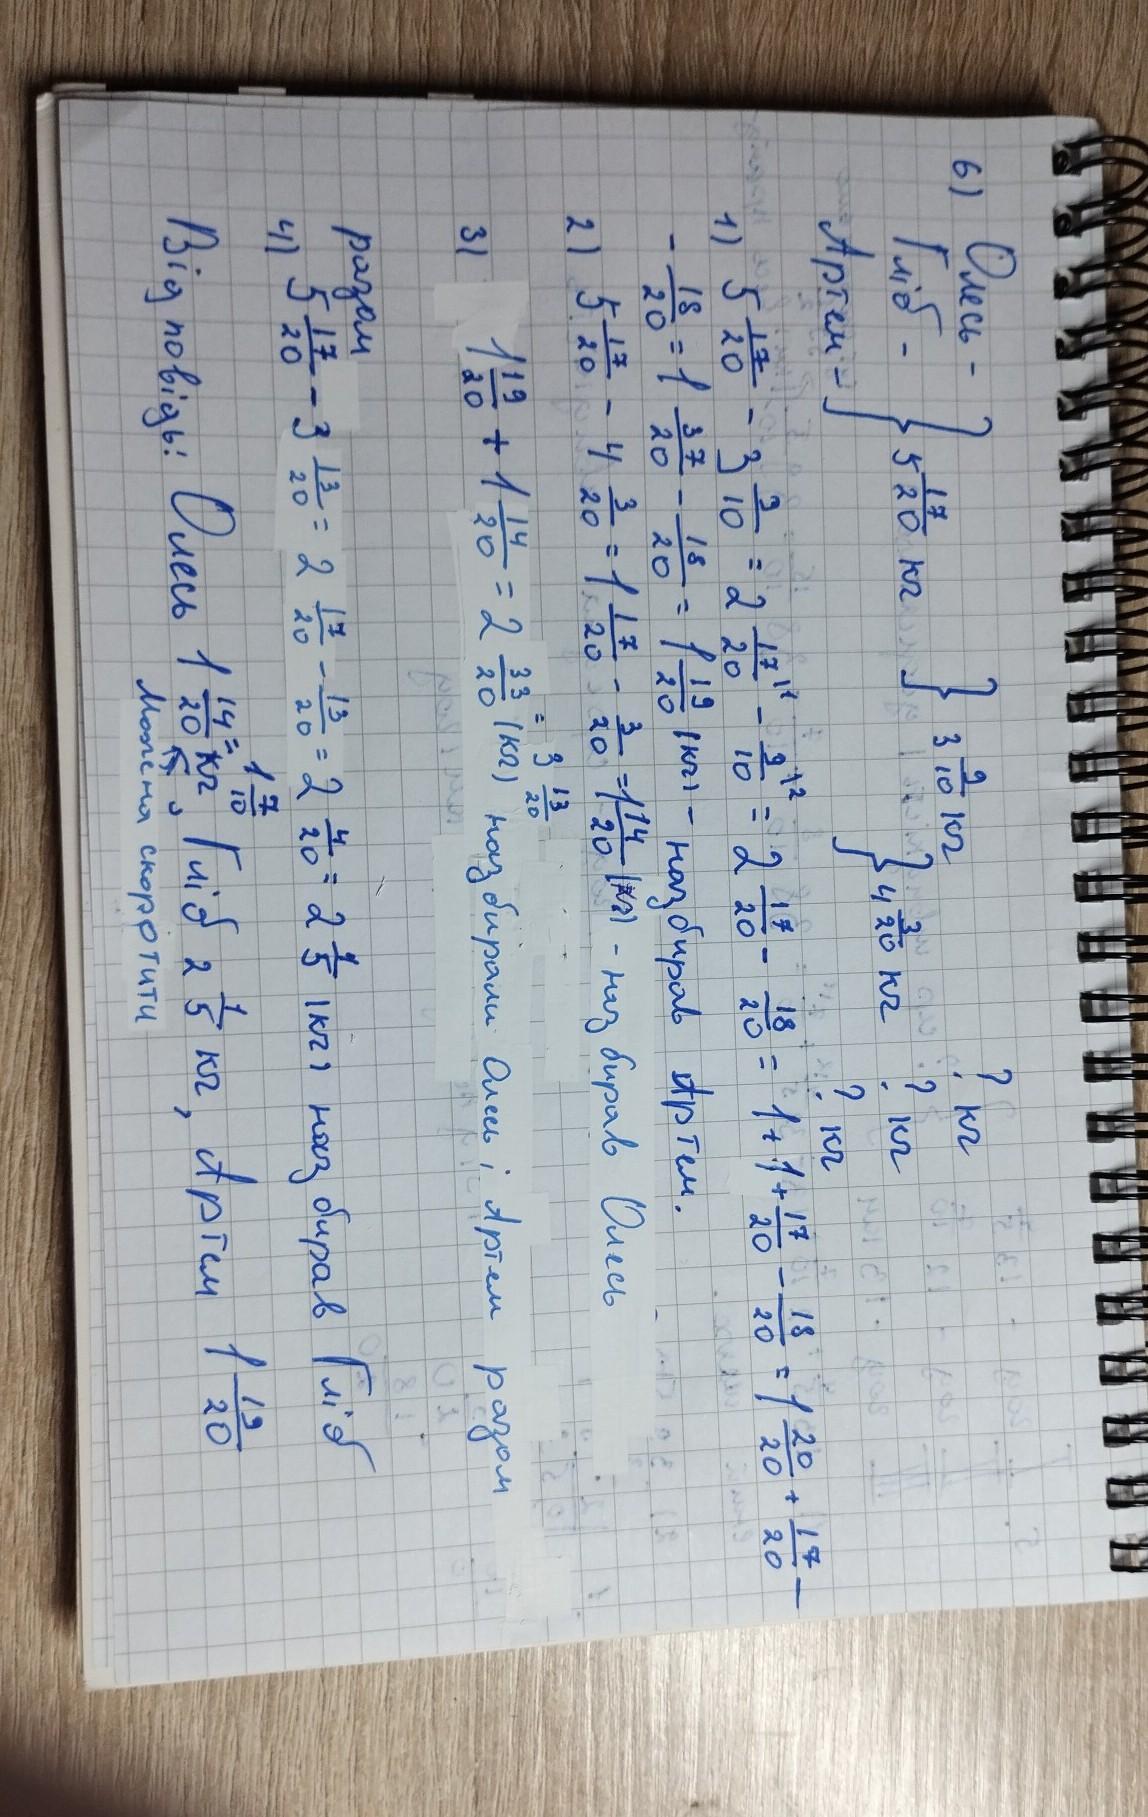 6) Олесь -
Гліб - } 5 17/20 кг } 3 9/10 кг ? кг
Артем - } 4 3/20 кг ? кг
? кг
1) 5 17/20 - 3 9/10 = 2 17/20 - 9/10 = 2 17/20 - 18/20 = 1 + 1 + 17/20 - 18/20 = 1 20/20 + 17/20 -
- 18/20 = 1 37/20 - 18/20 = 1 19/20 (кг) - назбирав Артем.
2) 5 17/20 - 4 3/20 = 1 17/20 - 3/20 = 1 14/20 (кг) - назбирав Олесь
3) 1 19/20 + 1 14/20 = 2 33/20 = 3 13/20 (кг) назбирали Олесь і Артем разом
разом
4) 5 17/20 - 3 13/20 = 2 17/20 - 13/20 = 2 4/20 = 2 1/5 (кг) назбирав Гліб
Відповідь: Олесь 1 14/20 = 1 7/10 кг, Гліб 2 1/5 кг, Артем 1 19/20
Можена скоротити